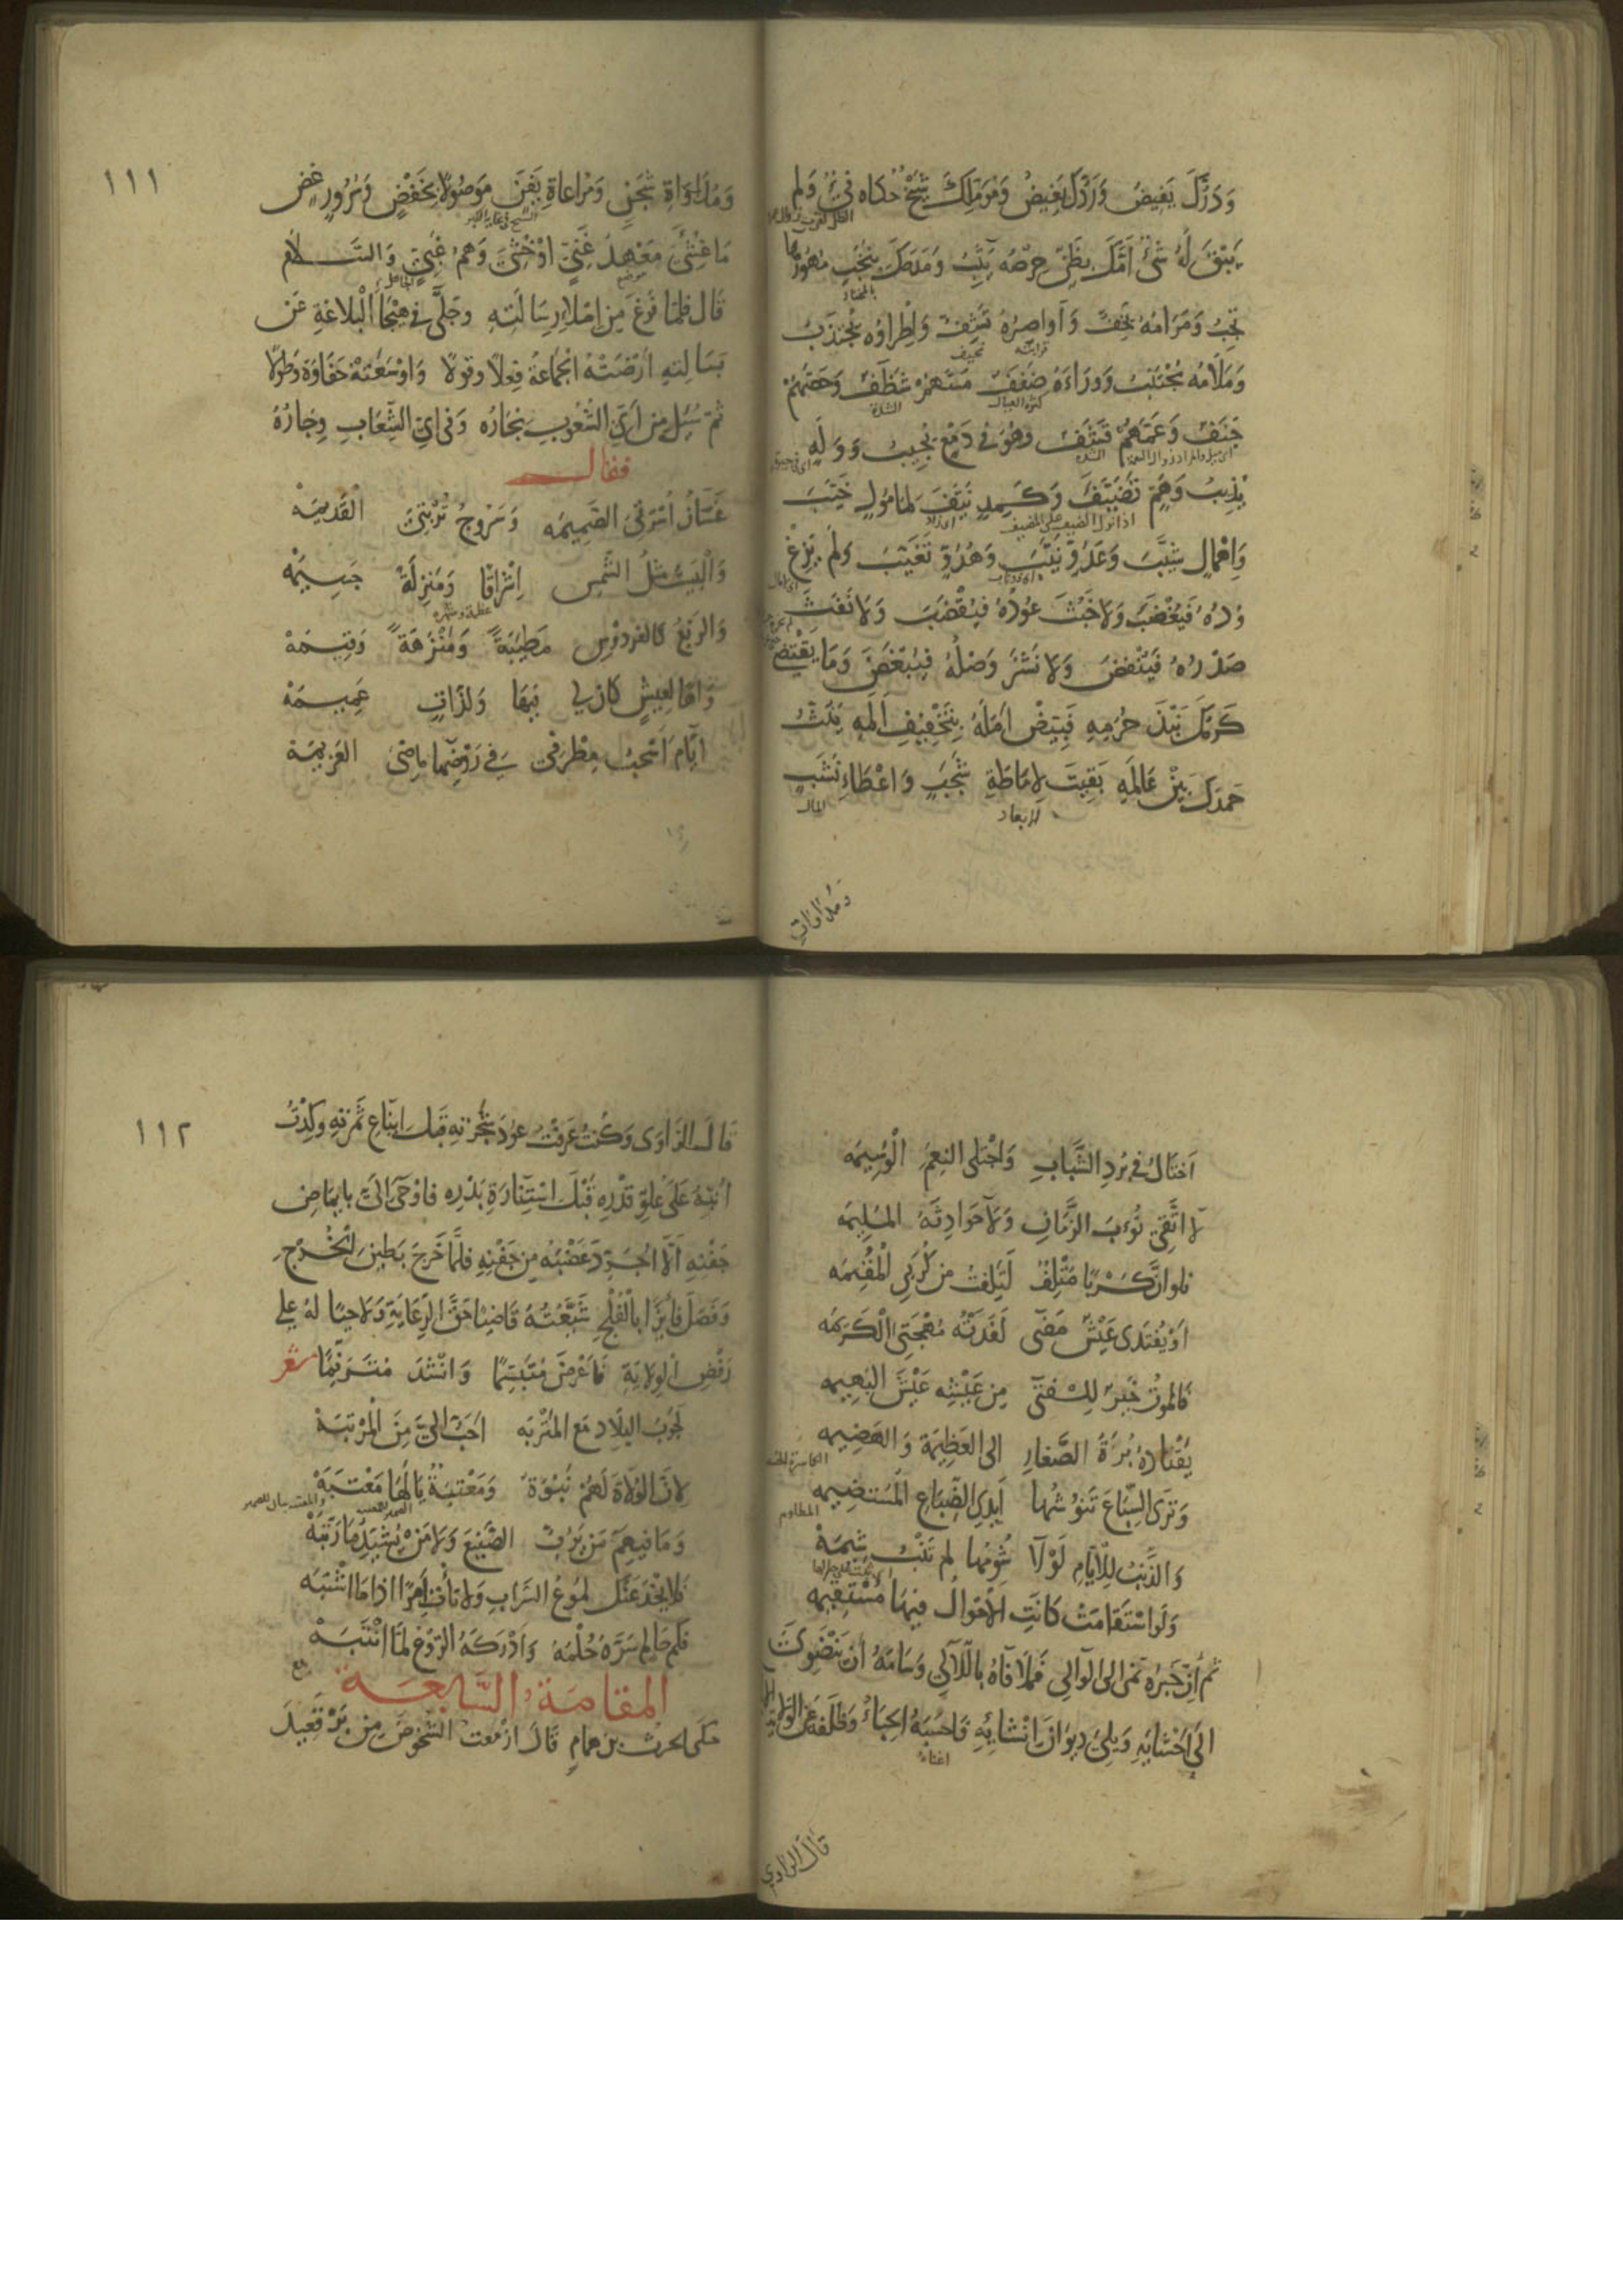 وَدَرُّكَ يَفِيضُ وَرَدُّكَ يَغِيضُ وَمُؤَمِّلُكَ شَيْخٌ حَكَاهُ فَيْءٌ وَلَمْ
يَبْقَ لَهُ شَيْءٌ اَمَّكَ بِظَنٍّ حِرْصُهُ يَثِبُ وَمَدَحَكَ بِنُخَبٍ مُهُورُهَا
تَجِبُ وَمَرَامُهُ يَخِفُّ وَاَوَاصِرُهُ تَشِفُّ وَاِطْرَاؤُهُ يُجْتَذَبُ
وَمَلَامُهُ يُجْتَنَبُ وَوَرَاءَهُ ضَفَفٌ مَسَّهُمْ شَظَفٌ وَحَصَّهُمْ
جَنَفٌ وَعَمَّهُمْ قَشَفٌ وَهُوَ فِي دَمْعٍ يُجِيبُ وَوَلَهٍ
يُذِيبُ وَهَمٍّ تَضَيَّفَ وَكَمَدٍ نَيَّفَ لِمَأْمُولٍ خَيَّبَ
وَاِهْمَالٍ شَيَّبَ وَعَدُوٍّ نَيَّبَ وَهُدُوٍّ تَغَيَّبَ وَلَمْ يَزِغْ
وُدُّهُ فَيُغْضَبَ وَلَا خَبُثَ عُودُهُ فَيُقْضَبَ وَلَا نَفَثَ
صَدْرُهُ فَيُنْفَضَ وَلَا نَشَزَ وَصْلُهُ فَيُبْغَضَ وَمَا يَقْتَضِي
كَرَمُكَ نَبْذَ حُرَمِهِ فَبَيِّضْ اَمَلَهُ بِتَخْفِيفِ اَلَمِهِ يَنُثُّ
حَمْدَكَ بَيْنَ عَالَمِهِ بَقِيتَ لِاِمَاطَةِ شَجَبٍ وَاِعْطَاءِ نَشَبٍ
لابعاد المال
وَمُدَاوَاةِ
١١١
وَمُدَاوَاةِ شَجَنٍ وَمُرَاعَاةِ يَفَنٍ مَوْصُولًا بِخَفْضٍ وَسُرُورٍ غَضٍّ
مَا غُشِيَ مَعْهَدُ غَنِيٍّ اَوْ خُشِيَ وَهْمُ غَبِيٍّ وَالسَّلَامُ
قَالَ فَلَمَّا فَرَغَ مِنْ اِمْلَاءِ رِسَالَتِهِ وَجَلَّى فِي هَيْجَاءِ الْبَلَاغَةِ عَنْ
بَسَالَتِهِ اَرْضَتْهُ الْجَمَاعَةُ فِعْلًا وَقَوْلًا وَاَوْسَعَتْهُ حَفَاوَةً وَطَوْلًا
ثُمَّ سُئِلَ مِنْ اَيِّ الشُّعُوبِ نِجَارُهُ وَفِي اَيِّ الشِّعَابِ وِجَارُهُ
فقال
غَسَّانُ اُسْرَتِيَ الصَّمِيمَه وَسَرُوجُ تُرْبَتِيَ الْقَدِيمَهْ
وَالْبَيْتُ مِثْلُ الشَّمْسِ اِشْرَاقًا وَمَنْزِلَةً جَسِيمَهْ
وَالرَّبْعُ كَالْفِرْدَوْسِ مَطْيَبَةً وَمَنْزَهَةً وَقِيمَهْ
وَاهًا لِعَيْشٍ كَانَ لِي فِيهَا وَلَذَّاتٍ عَمِيمَهْ
اَيَّامَ اَسْحَبُ مِطْرَفِي فِي رَوْضِهَا مَاضِي الْعَزِيمَهْ
اَخْتَالُ فِي بُرْدِ الشَّبَابِ وَاَجْتَلِي النِّعَمَ الْوَسِيمَه
لَا اَتَّقِي نُوَبَ الزَّمَانِ وَلَا حَوَادِثَهُ الْمُلِيمَه
فَلَوْ اَنَّ كَرْبًا مُتْلِفٌ لَتَلِفْتُ مِنْ كُرَبِي الْمُقِيمَه
اَوْ يُفْتَدَى عَيْشٌ مَضَى لَفَدَتْهُ مُهْجَتِيَ الْكَرِيمَه
فَالْمَوْتُ خَيْرٌ لِلْفَتَى مِنْ عَيْشِهِ عَيْشَ الْبَهِيمَه
يَقْتَادُهُ بُرَةُ الصَّغَارِ اِلَى الْعَظِيمَةِ وَالْهَضِيمَه
وَتَرَى السِّبَاعَ تَنُوشُهَا اَيْدِي الضِّبَاعِ الْمُسْتَضِيمَه
وَالذَّنْبُ لِلْاَيَّامِ لَوْلَا شُومُهَا لَمْ تَنْبُ شِيمَهْ
وَلَوِ اسْتَقَامَتْ كَانَتِ الْاَحْوَالُ فِيهَا مُسْتَقِيمَه
ثُمَّ اِنَّ خَبَرَهُ نَمَى اِلَى الْوَالِي فَمَلَا فَاهُ بِاللَّآلِي وَسَامَهُ اَنْ يَنْضَوِيَ
اِلَى اَحْشَائِهِ وَيَلِيَ دِيوَانَ اِنْشَائِهِ فَاَحْسَبَهُ الْحِبَاءُ وَظَلَفَهُ عَنِ الْوِلَايَةِ
قَالَ الرَّاوِي
١١٢
قَالَ الرَّاوِي وَكُنْتُ عَرَفْتُ عُودَ شَجَرَتِهِ قَبْلَ اِينَاعِ ثَمَرَتِهِ وَكِدْتُ
اُنَبِّهُ عَلَى عُلُوِّ قَدْرِهِ قَبْلَ اسْتِنَارَةِ بَدْرِهِ فَاَوْحَى اِلَيَّ بِاِيمَاضِ
جَفْنِهِ اَلَّا اُجَرِّدَ عَضْبَهُ مِنْ جَفْنِهِ فَلَمَّا خَرَجَ بَطِينَ الْخُرْجِ
وَفَصَلَ فَائِزًا بِالْفُلْجِ شَيَّعْتُهُ قَاضِيًا حَقَّ الرِّعَايَةِ وَلَاحِيًا لَهُ عَلَى
رَفْضِ الْوِلَايَةِ فَاَعْرَضَ مُتَبَسِّمًا وَاَنْشَدَ مُتَرَنِّمًا شعر
لَجَوْبُ الْبِلَادِ مَعَ الْمَتْرَبَه اَحَبُّ اِلَيَّ مِنَ الْمَرْتَبَهْ
لِاَنَّ الْوُلَاةَ لَهُمْ نَبْوَةٌ وَمَعْتَبَةٌ يَا لَهَا مَعْتَبَهْ
وَمَا فِيهِمُ مَنْ يَرُبُّ الصَّنِيعَ وَلَا مَنْ يُشَيِّدُ مَا رَتَّبَهْ
فَلَا يَخْدَعَنْكَ لُمُوعُ السَّرَابِ وَلَا تَأْتِ اَمْرًا اِذَا مَا اشْتَبَه
فَكَمْ حَالِمٍ سَرَّهُ حُلْمُهُ وَاَدْرَكَهُ الرَّوْعُ لَمَّا انْتَبَهْ
المقامة السَّابعة
حَكَى الحرث بن همام قَالَ اَزْمَعْتُ الشُّخُوصَ مِنْ بَرْقَعِيدَ